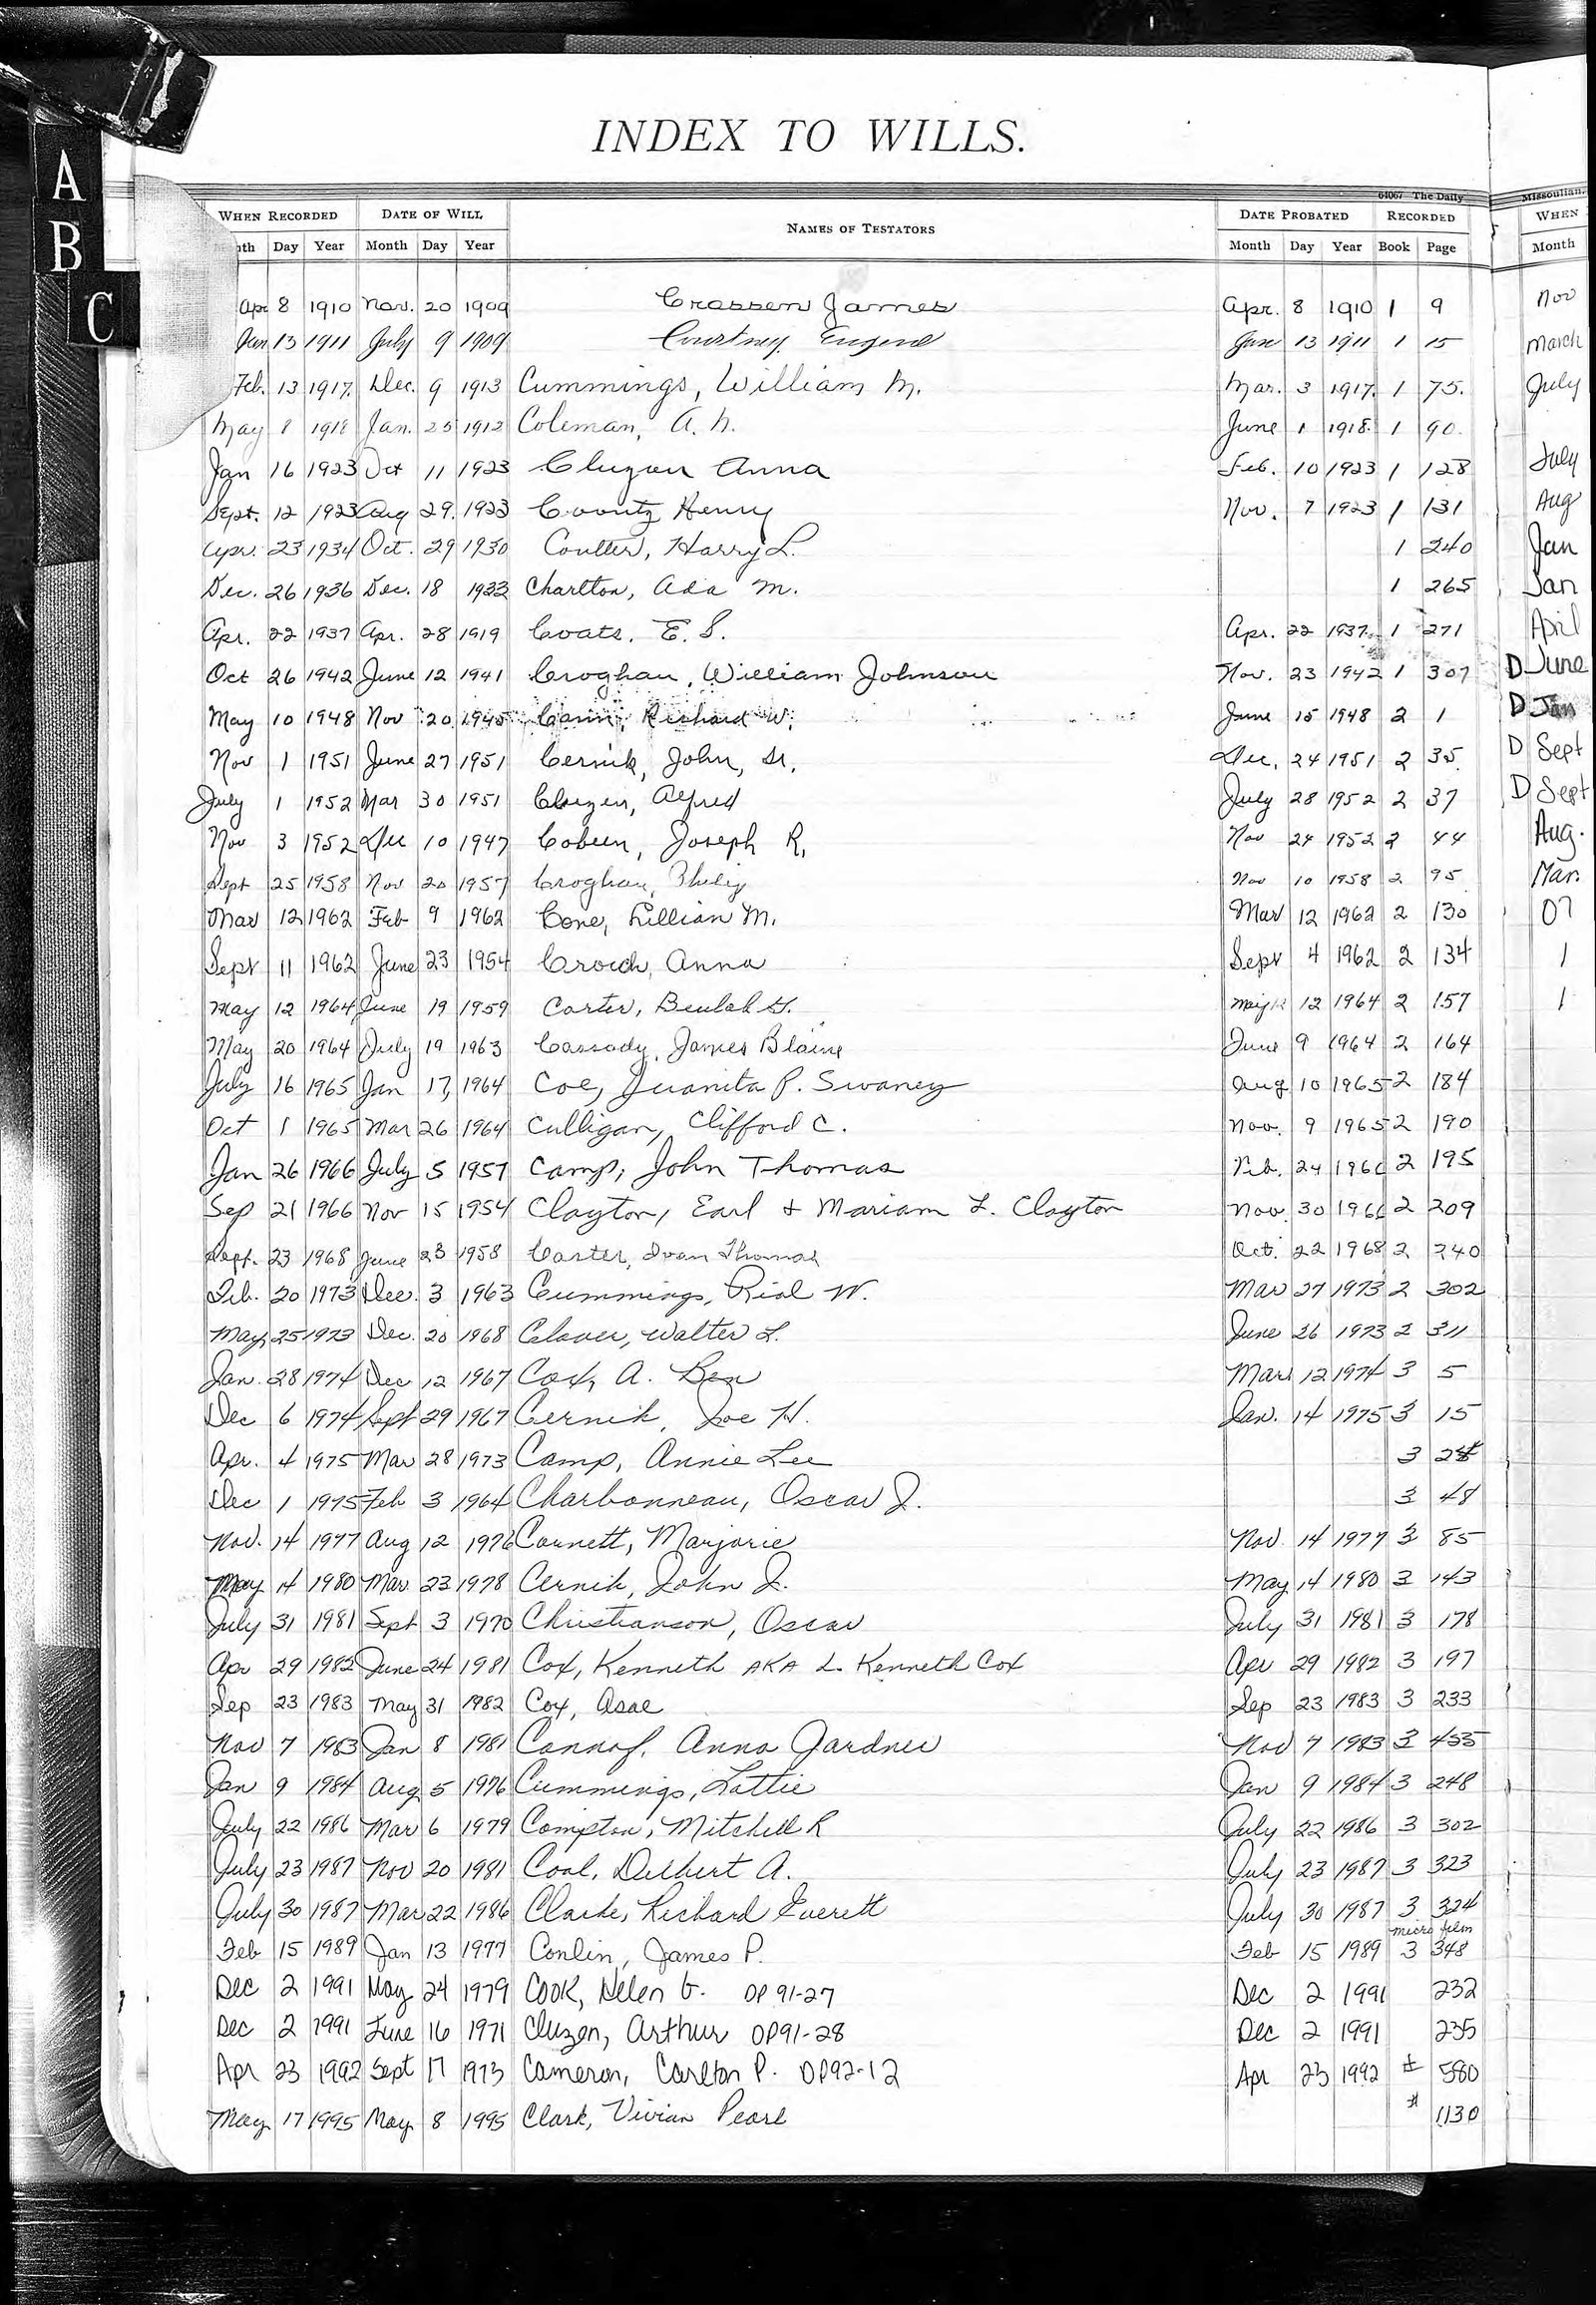 A
B
C
INDEX TO WILLS.
64067 The Daily Missoulian.
WHEN RECORDED DATE OF WILL NAMES OF TESTATORS DATE PROBATED RECORDED WHEN
nth Day Year Month Day Year Month Day Year Book Page Month
Apr 8 1910 Nov. 20 1909 Crassen James Apr. 8 1910 1 9 Nov
Jan 13 1911 July 9 1909 Courtney, Eugene Jan 13 1911 1 15 March
Feb. 13 1917. Dec. 9 1913 Cummings, William M. Mar. 3 1917. 1 75. July
May 8 1918 Jan. 25 1912 Coleman, A. N. June 1 1918. 1 90.
Jan 16 1923 Oct 11 1923 Cluzen Anna Feb. 10 1923 1 128 July
Sept. 12 1923 Aug 29. 1923 Coontz Henry Nov. 7 1923 1 131 Aug
Apr. 23 1934 Oct. 29 1930 Coulter, Harry L. 1 240 Jan
Dec. 26 1936 Dec. 18 1933 Charlton, Ada M. 1 265 Jan
Apr. 22 1937 Apr. 28 1919 Coats, E. S. Apr. 22 1937. 1 271 April
Oct 26 1942 June 12 1941 Croghan, William Johnson Nov. 23 1942 1 307 D June
May 10 1948 Nov 20 1945 Richard W. June 15 1948 2 1 D Jan
Nov 1 1951 June 27 1951 Cernik, John, Sr. Dec. 24 1951 2 35. D Sept
July 1 1952 Mar 30 1951 Cluzen, Alfred July 28 1952 2 37 D Sept
Nov 3 1952 Dec 10 1947 Cobeen, Joseph R. Nov 24 1952 2 44 Aug.
Sept 25 1958 Nov 20 1957 Croghan, Philip Nov 10 1958 2 95 Mar.
Mar 12 1962 Feb 9 1962 Cone, Lillian M. Mar 12 1962 2 130 07
Sept 11 1962 June 23 1954 Crouch, Anna Sept 4 1962 2 134 1
May 12 1964 June 19 1959 Carter, Beulah G. May 12 1964 2 157 1
May 20 1964 July 19 1963 Cassady, James Blaine June 9 1964 2 164
July 16 1965 Jan 17, 1964 Coe, Juanita P. Swaney Aug 10 1965 2 184
Oct 1 1965 Mar 26 1964 Culligan, Clifford C. Nov. 9 1965 2 190
Jan 26 1966 July 5 1957 Camp, John Thomas Feb. 24 1966 2 195
Sep 21 1966 Nov 15 1954 Clayton, Earl + Mariam L. Clayton Nov. 30 1966 2 209
Sept. 23 1968 June 23 1958 Carter, Ivan Thomas Oct. 22 1968 2 240
Feb. 20 1973 Dec. 3 1963 Cummings, Rial W. Mar 27 1973 2 302
May 25 1973 Dec. 20 1968 Claver, Walter L. June 26 1973 2 311
Jan. 28 1974 Dec 12 1967 Cox, A. Ben Mar 12 1974 3 5
Dec 6 1974 Sept 29 1967 Cernik, Joe H. Jan. 14 1975 3 15
Apr. 4 1975 Mar 28 1973 Camp, Annie Lee 3 28
Dec 1 1975 Feb 3 1964 Charbonneau, Oscar J. 3 48
Nov. 14 1977 Aug 12 1976 Cornett, Marjorie Nov 14 1977 3 85
May 14 1980 Mar 23 1978 Cernik, John J. May 14 1980 3 143
July 31 1981 Sept 3 1970 Christianson, Oscar July 31 1981 3 178
Apr 29 1982 June 24 1981 Cox, Kenneth AKA L. Kenneth Cox Apr 29 1982 3 197
Sep 23 1983 May 31 1982 Cox, Asae Sep 23 1983 3 233
Nov 7 1983 Jan 8 1981 Anna Gardner Nov 7 1983 3 435
Jan 9 1984 Aug 5 1976 Cummings, Lottie Jan 9 1984 3 248
July 22 1986 Mar 6 1979 Compton, Mitchell R July 22 1986 3 302
July 23 1987 Nov 20 1981 Coal, Delbert A. July 23 1987 3 323
July 30 1987 Mar 22 1986 Clarke, Richard Everett July 30 1987 3 324
micro film
Feb 15 1989 Jan 13 1977 Conlin, James P. Feb 15 1989 3 348
Dec 2 1991 May 24 1979 Cook, Helen G. DP 91-27 Dec 2 1991 232
Dec 2 1991 June 16 1971 Cluzen, Arthur DP91-28 Dec 2 1991 235
Apr 23 1992 Sept 17 1973 Cameron, Carlton P. DP92-12 Apr 23 1992 # 580
May 17 1995 May 8 1995 Clark, Vivian Pearl # 1130